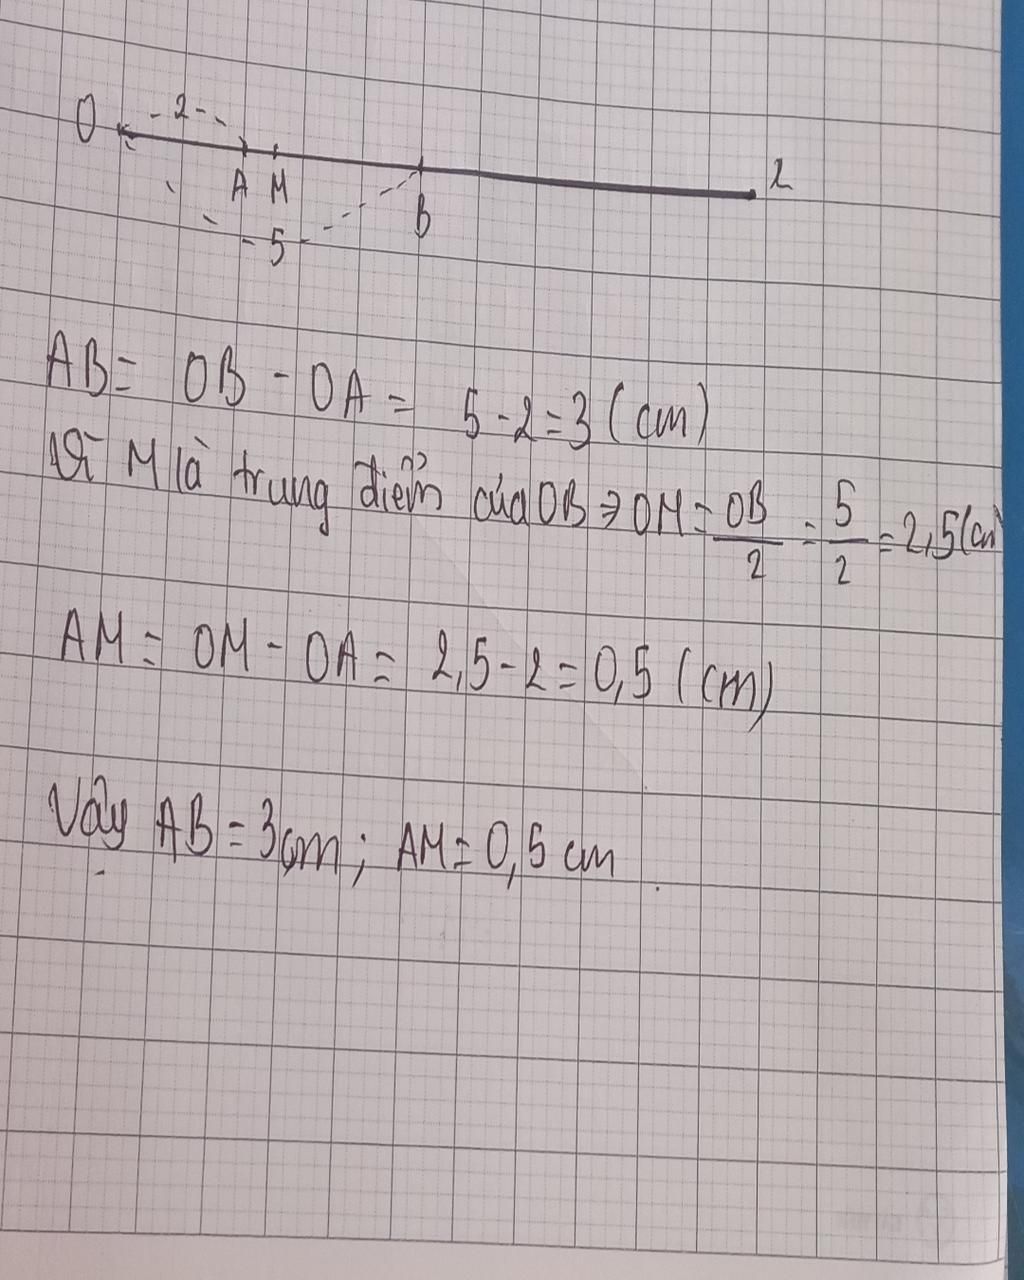 O 2 x
A M B
5
AB = OB - OA = 5 - 2 = 3 (cm)
Vì M là trung điểm của OB ⇒ OM = OB/2 = 5/2 = 2,5 (cm)
AM = OM - OA = 2,5 - 2 = 0,5 (cm)
Vậy AB = 3cm; AM = 0,5 cm.